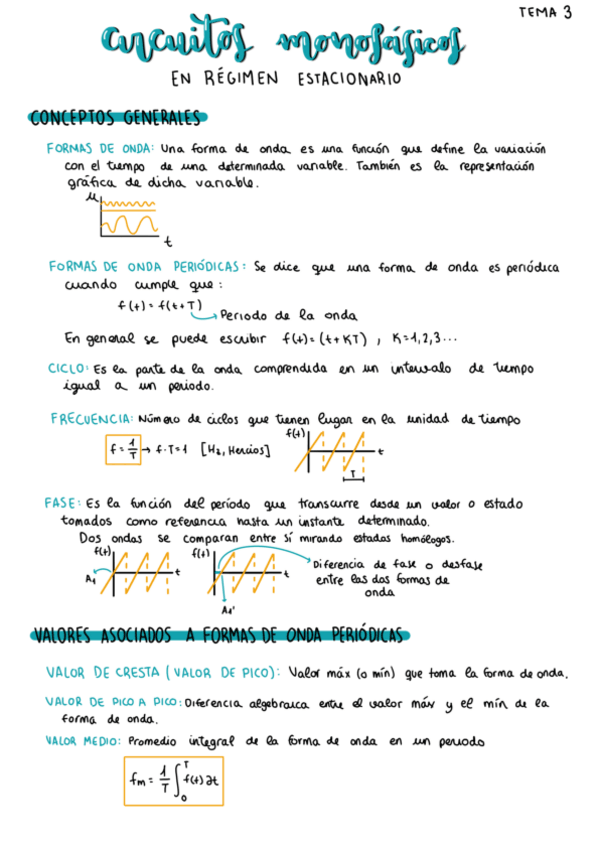 TEMA 3
circuitos monofásicos
EN RÉGIMEN ESTACIONARIO
CONCEPTOS GENERALES
FORMAS DE ONDA: Una forma de onda es una función que define la variación
con el tiempo de una determinada variable. También es la representación
gráfica de dicha variable.
u
t
FORMAS DE ONDA PERIÓDICAS: Se dice que una forma de onda es periódica
cuando cumple que:
f(t) = f(t+T)
Periodo de la onda
En general se puede escribir f(t) = (t+KT) , K=1,2,3...
CICLO: Es la parte de la onda comprendida en un intervalo de tiempo
igual a un periodo.
FRECUENCIA: Número de ciclos que tienen lugar en la unidad de tiempo
f = 1/T → f·T=1 [Hz, Hercios]
f(t)
t
T
FASE: Es la función del período que transcurre desde un valor o estado
tomados como referencia hasta un instante determinado.
Dos ondas se comparan entre sí mirando estados homólogos.
f(t)
t
A1
f(t)
t
A1'
Diferencia de fase o desfase
entre las dos formas de
onda
VALORES ASOCIADOS A FORMAS DE ONDA PERIÓDICAS
VALOR DE CRESTA (VALOR DE PICO): Valor máx (o mín) que toma la forma de onda.
VALOR DE PICO A PICO: Diferencia algebraica entre el valor máx y el mín de la
forma de onda.
VALOR MEDIO: Promedio integral de la forma de onda en un periodo
fm = 1/T ∫₀ᵀ f(t) ∂t